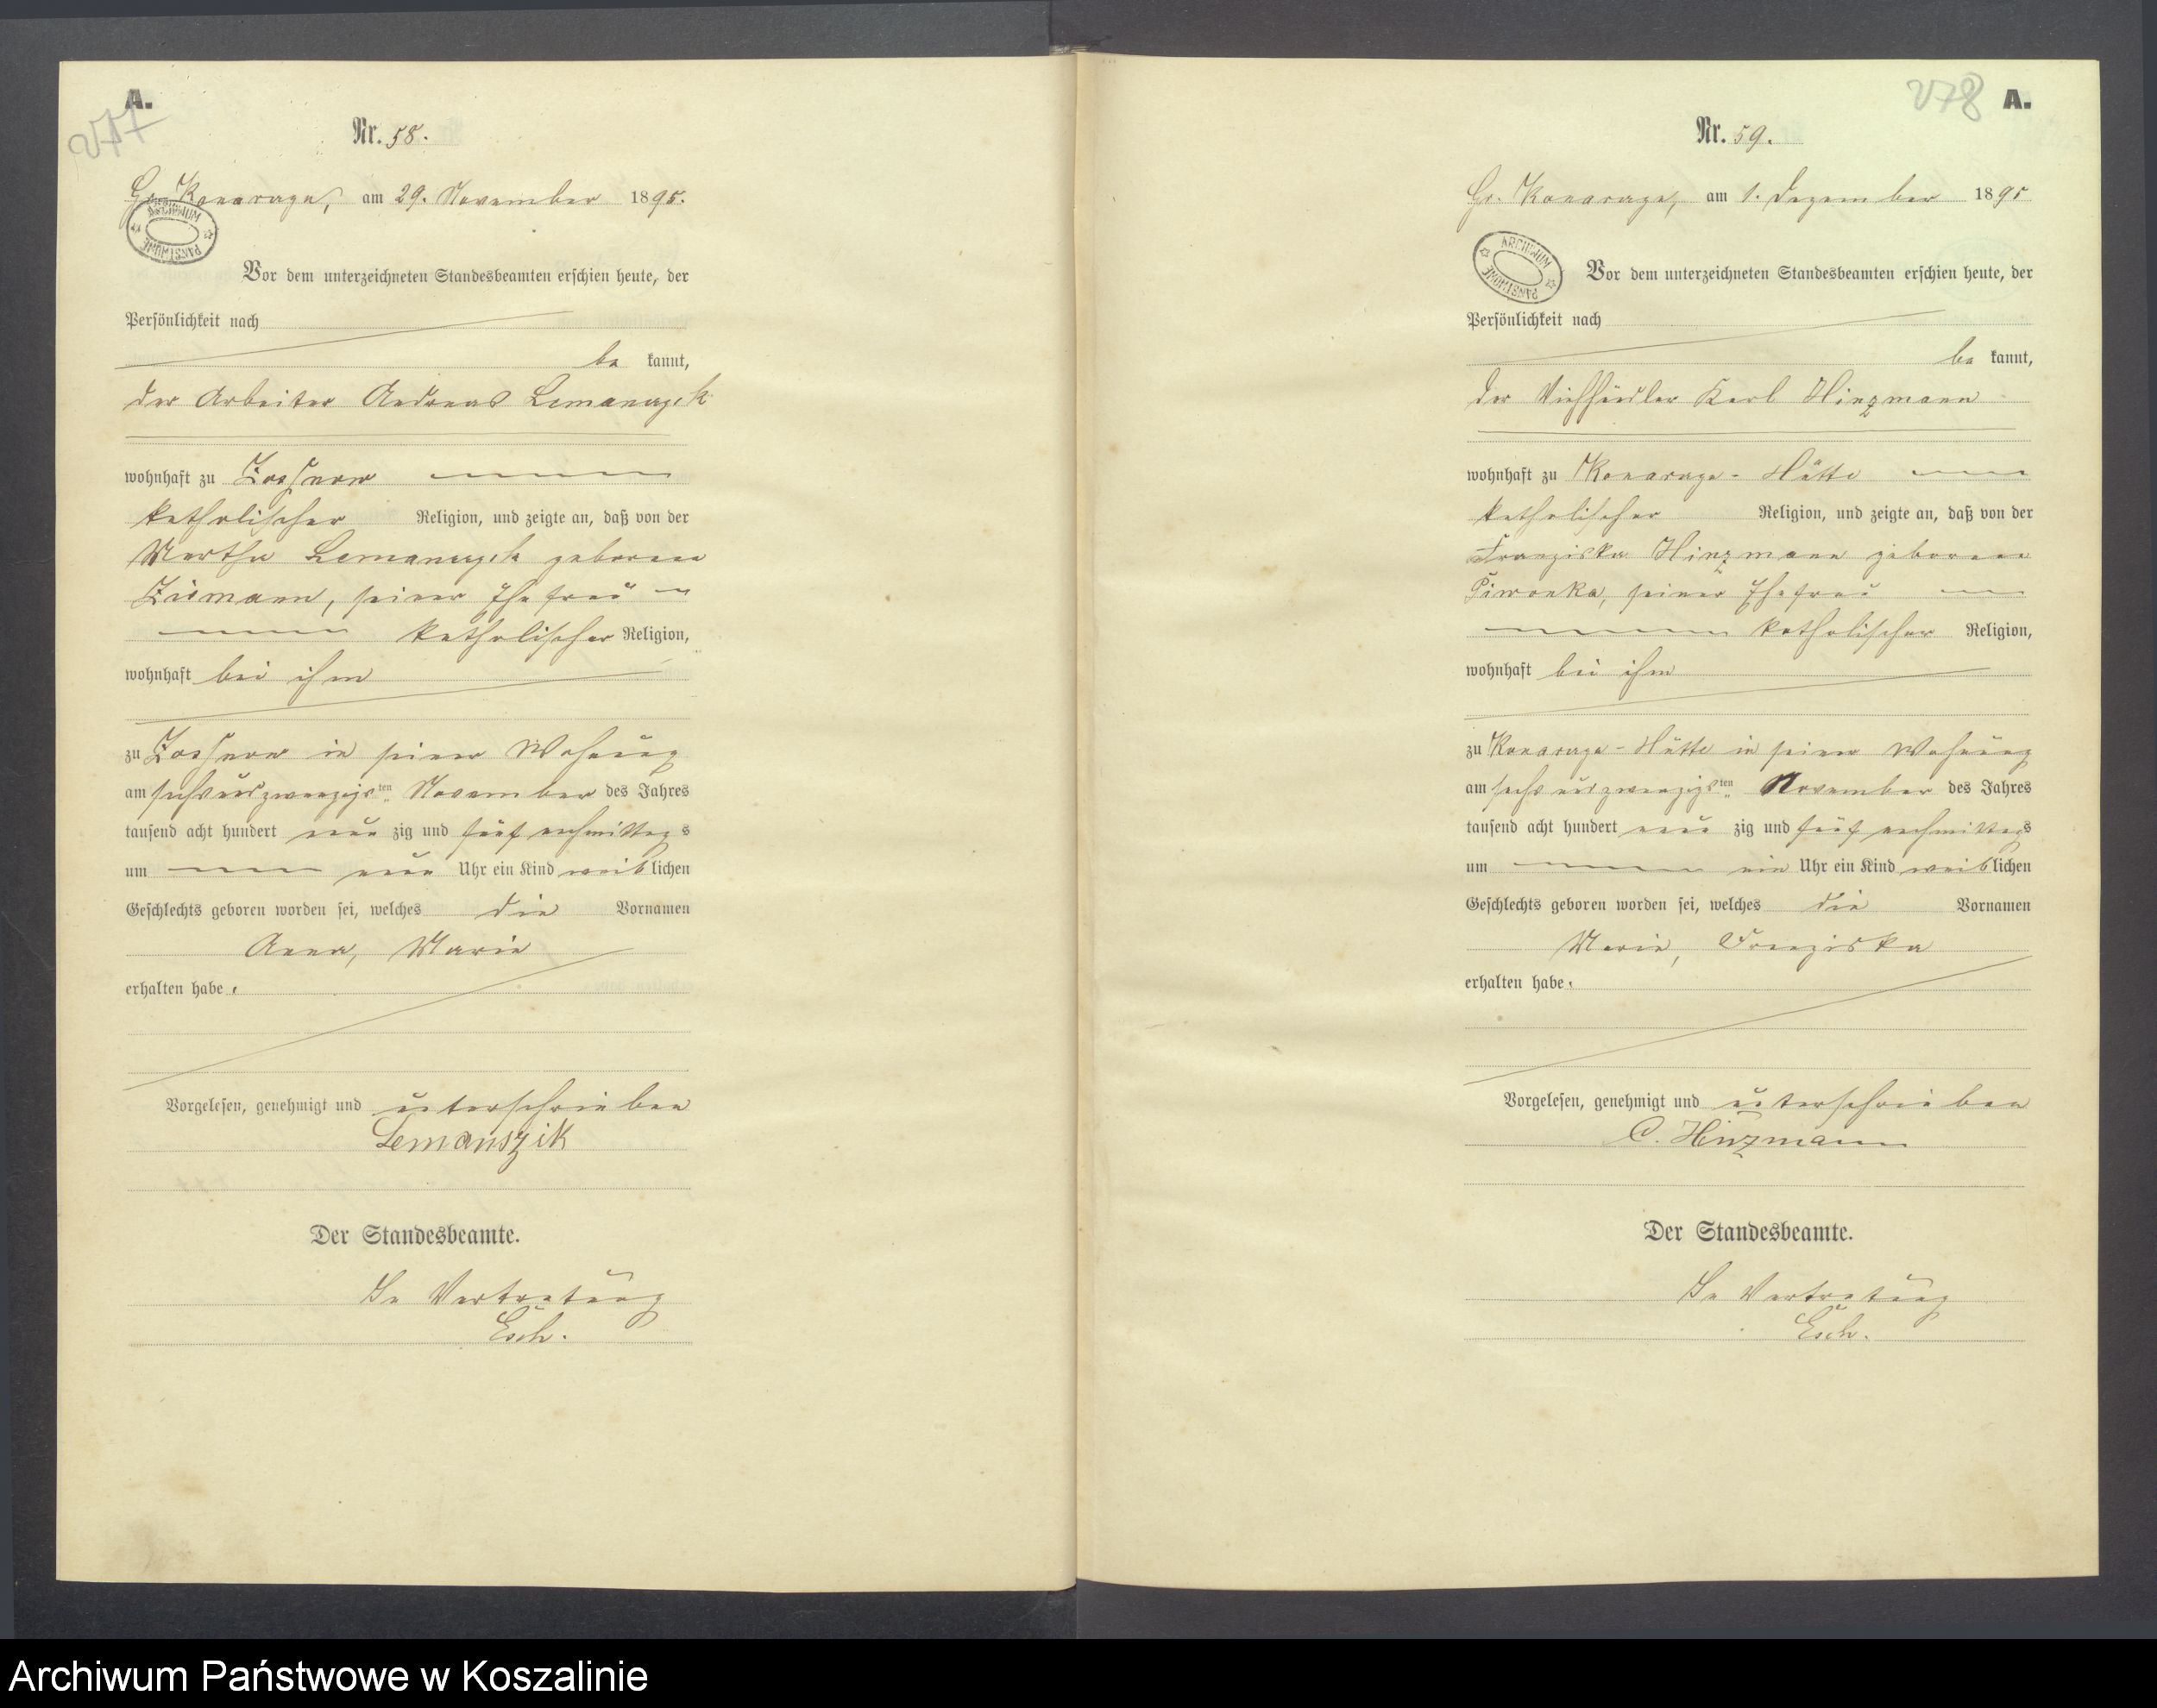 A.
Nr. 58.
Gr. Konarzyn, am 29. November 1895.
ARCHIWUM PAŃSTWOWE
Vor dem unterzeichneten Standesbeamten erschien heute, der
Persönlichkeit nach
be kannt,
der Arbeiter Andreas Lemanczik
wohnhaft zu
katholischer Religion, und zeigte an, daß von der
Martha Lemanczik geborene
seiner Ehefrau
katholischer Religion,
wohnhaft bei ihm
zu in seiner Wohnung
am sechsundzwanzigsten November des Jahres
tausend acht hundert neun zig und fünf nachmittags
um neun Uhr ein Kind weiblichen
Geschlechts geboren worden sei, welches die Vornamen
Anna, Marie
erhalten habe.
Vorgelesen, genehmigt und unterschrieben
Lemanszik
Der Standesbeamte.
In Vertretung
Esch.
278 A.
Nr. 59.
Gr. Konarzyn, am 1. Dezember 1895
ARCHIWUM PAŃSTWOWE
Vor dem unterzeichneten Standesbeamten erschien heute, der
Persönlichkeit nach
be kannt,
der Viehhändler Karl Hinzmann
wohnhaft zu Konarzyn-Hütte
katholischer Religion, und zeigte an, daß von der
Franziska Hinzmann geborene
Piwonka, seiner Ehefrau
katholischer Religion,
wohnhaft bei ihm
zu Konarzyn-Hütte in seiner Wohnung
am sechsundzwanzigsten November des Jahres
tausend acht hundert neun zig und fünf nachmittags
um ein Uhr ein Kind weiblichen
Geschlechts geboren worden sei, welches die Vornamen
Marie, Franziska
erhalten habe.
Vorgelesen, genehmigt und unterschrieben
C. Hinzmann
Der Standesbeamte.
In Vertretung
Esch.
Archiwum Państwowe w Koszalinie